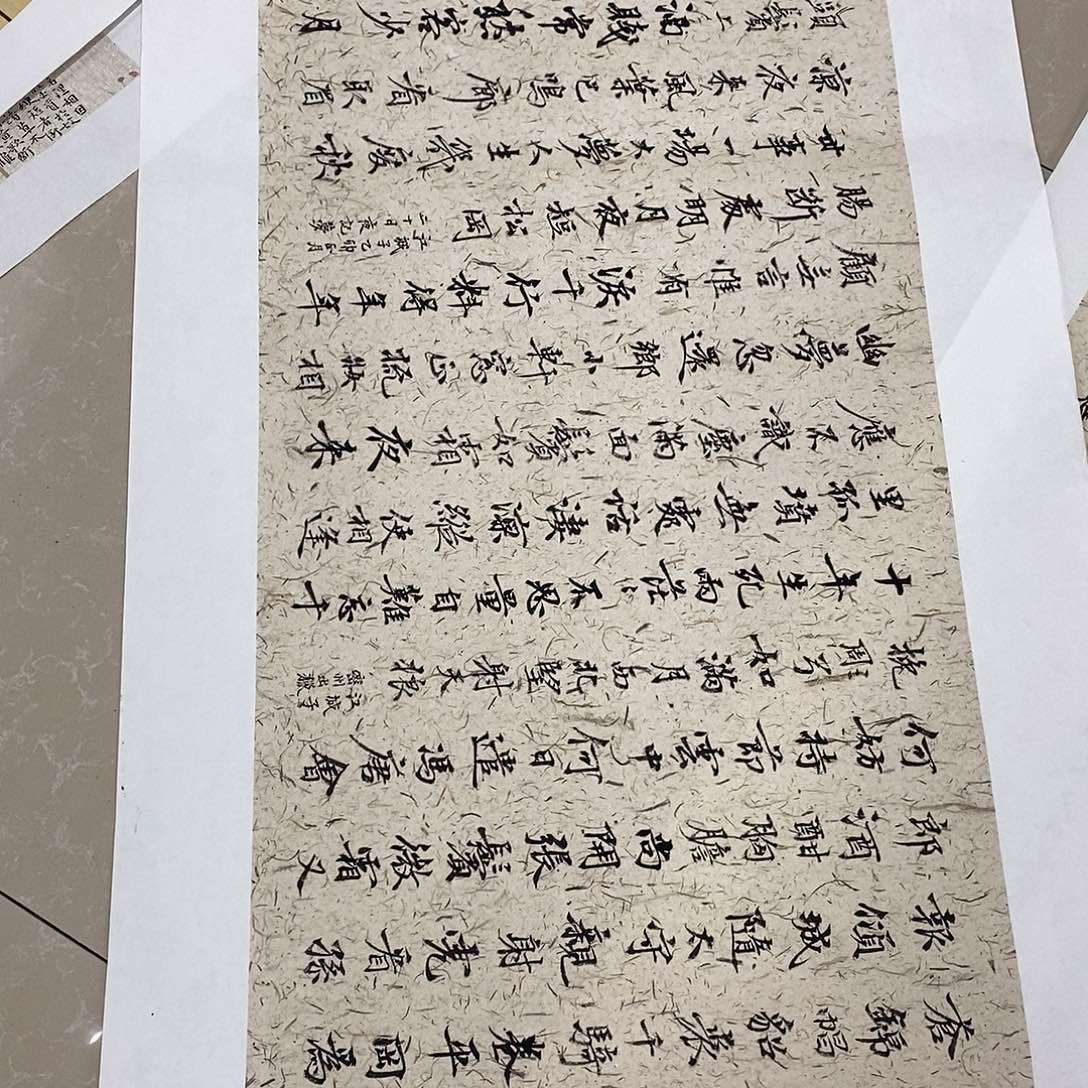 蒼錦帽貂裘千騎卷平岡爲
報傾城隨太守親射虎看孫
郎酒酣胸膽尚開張鬢微霜又
何妨持節雲中何日遣馮唐會
挽雕弓如滿月西北望射天狼
江城子
密州出獵
十年生死兩茫〻不思量自難忘千
里孤墳無處話淒涼縱使相逢
應不識塵滿面鬢如霜夜来
幽夢忽還鄉小軒窗正梳妝相
顧無言惟有淚千行料得年年
腸斷處明月夜短松岡
江城子乙卯正月
二十日夜記夢
世事一場大夢人生幾度秋
涼夜来風葉已鳴廊看取眉
頭鬢上酒賤常愁客少月